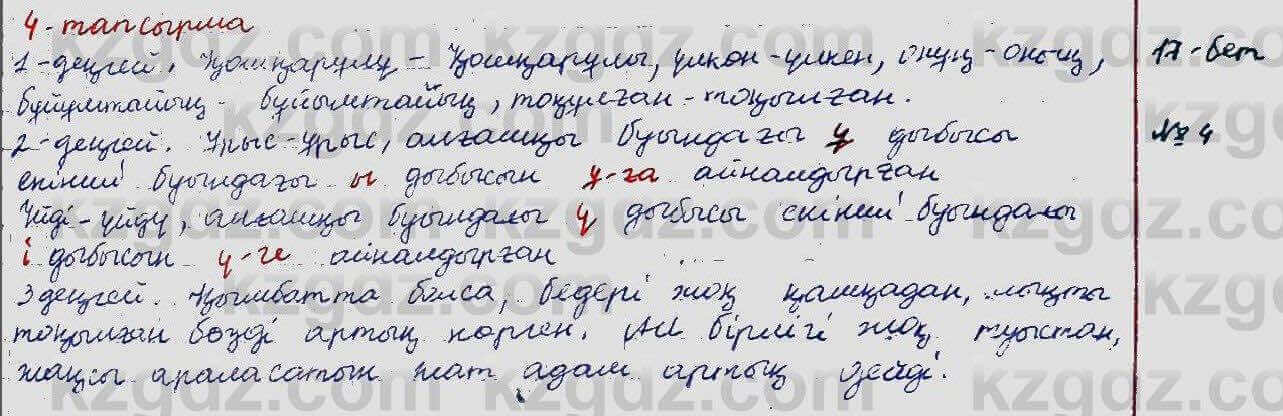 4-тапсырма
1-деңгей. Қошқарұлұ - Қошқарұлы, үлкөн-үлкен, оңұң-оның,
бұйұмтайың - бұйымтайың, тоқұлған-тоқылған.
2-деңгей. Ұрыс-ұрыс, алғашқы буындағы ұ дыбысы
екінші буындағы ы дыбысын ұ-ға айналдырған
Үйді-үйдү, алғашқы буындағы ү дыбысы екінші буындағы
і дыбысын ү-ге айналдырған
3деңгей. Қымбатта болса, бедері жоқ қамқадан, мықты
тоқылған бөзді артық көрген. Ал бірлігі жоқ туыстан,
жақсы араласатын жат адам артық дейді.
17-бет
№4
kzgdz.com